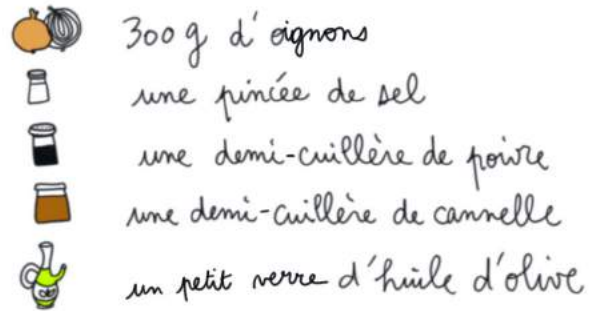 300 g d'oignons
une pincée de sel
une demi-cuillère de poivre
une demi-cuillère de cannelle
un petit verre d'huile d'olive